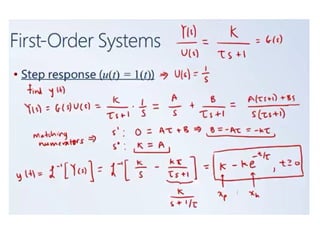 First-Order Systems Y(s)/U(s) = K/(τs+1) = G(s)
• Step response (u(t) = 1(t)) ⇒ U(s) = 1/s
find y(t)
Y(s) = G(s)U(s) = K/(τs+1) · 1/s = A/s + B/(τs+1) = (A(τs+1)+Bs)/(s(τs+1))
matching numerators ⇒ s¹: 0 = Aτ + B ⇒ B = -Aτ = -Kτ
s⁰: K = A
y(t) = ℒ⁻¹[Y(s)] = ℒ⁻¹[K/s - Kτ/(τs+1)] = K - Ke^(-t/τ), t≥0
K/(s + 1/τ)